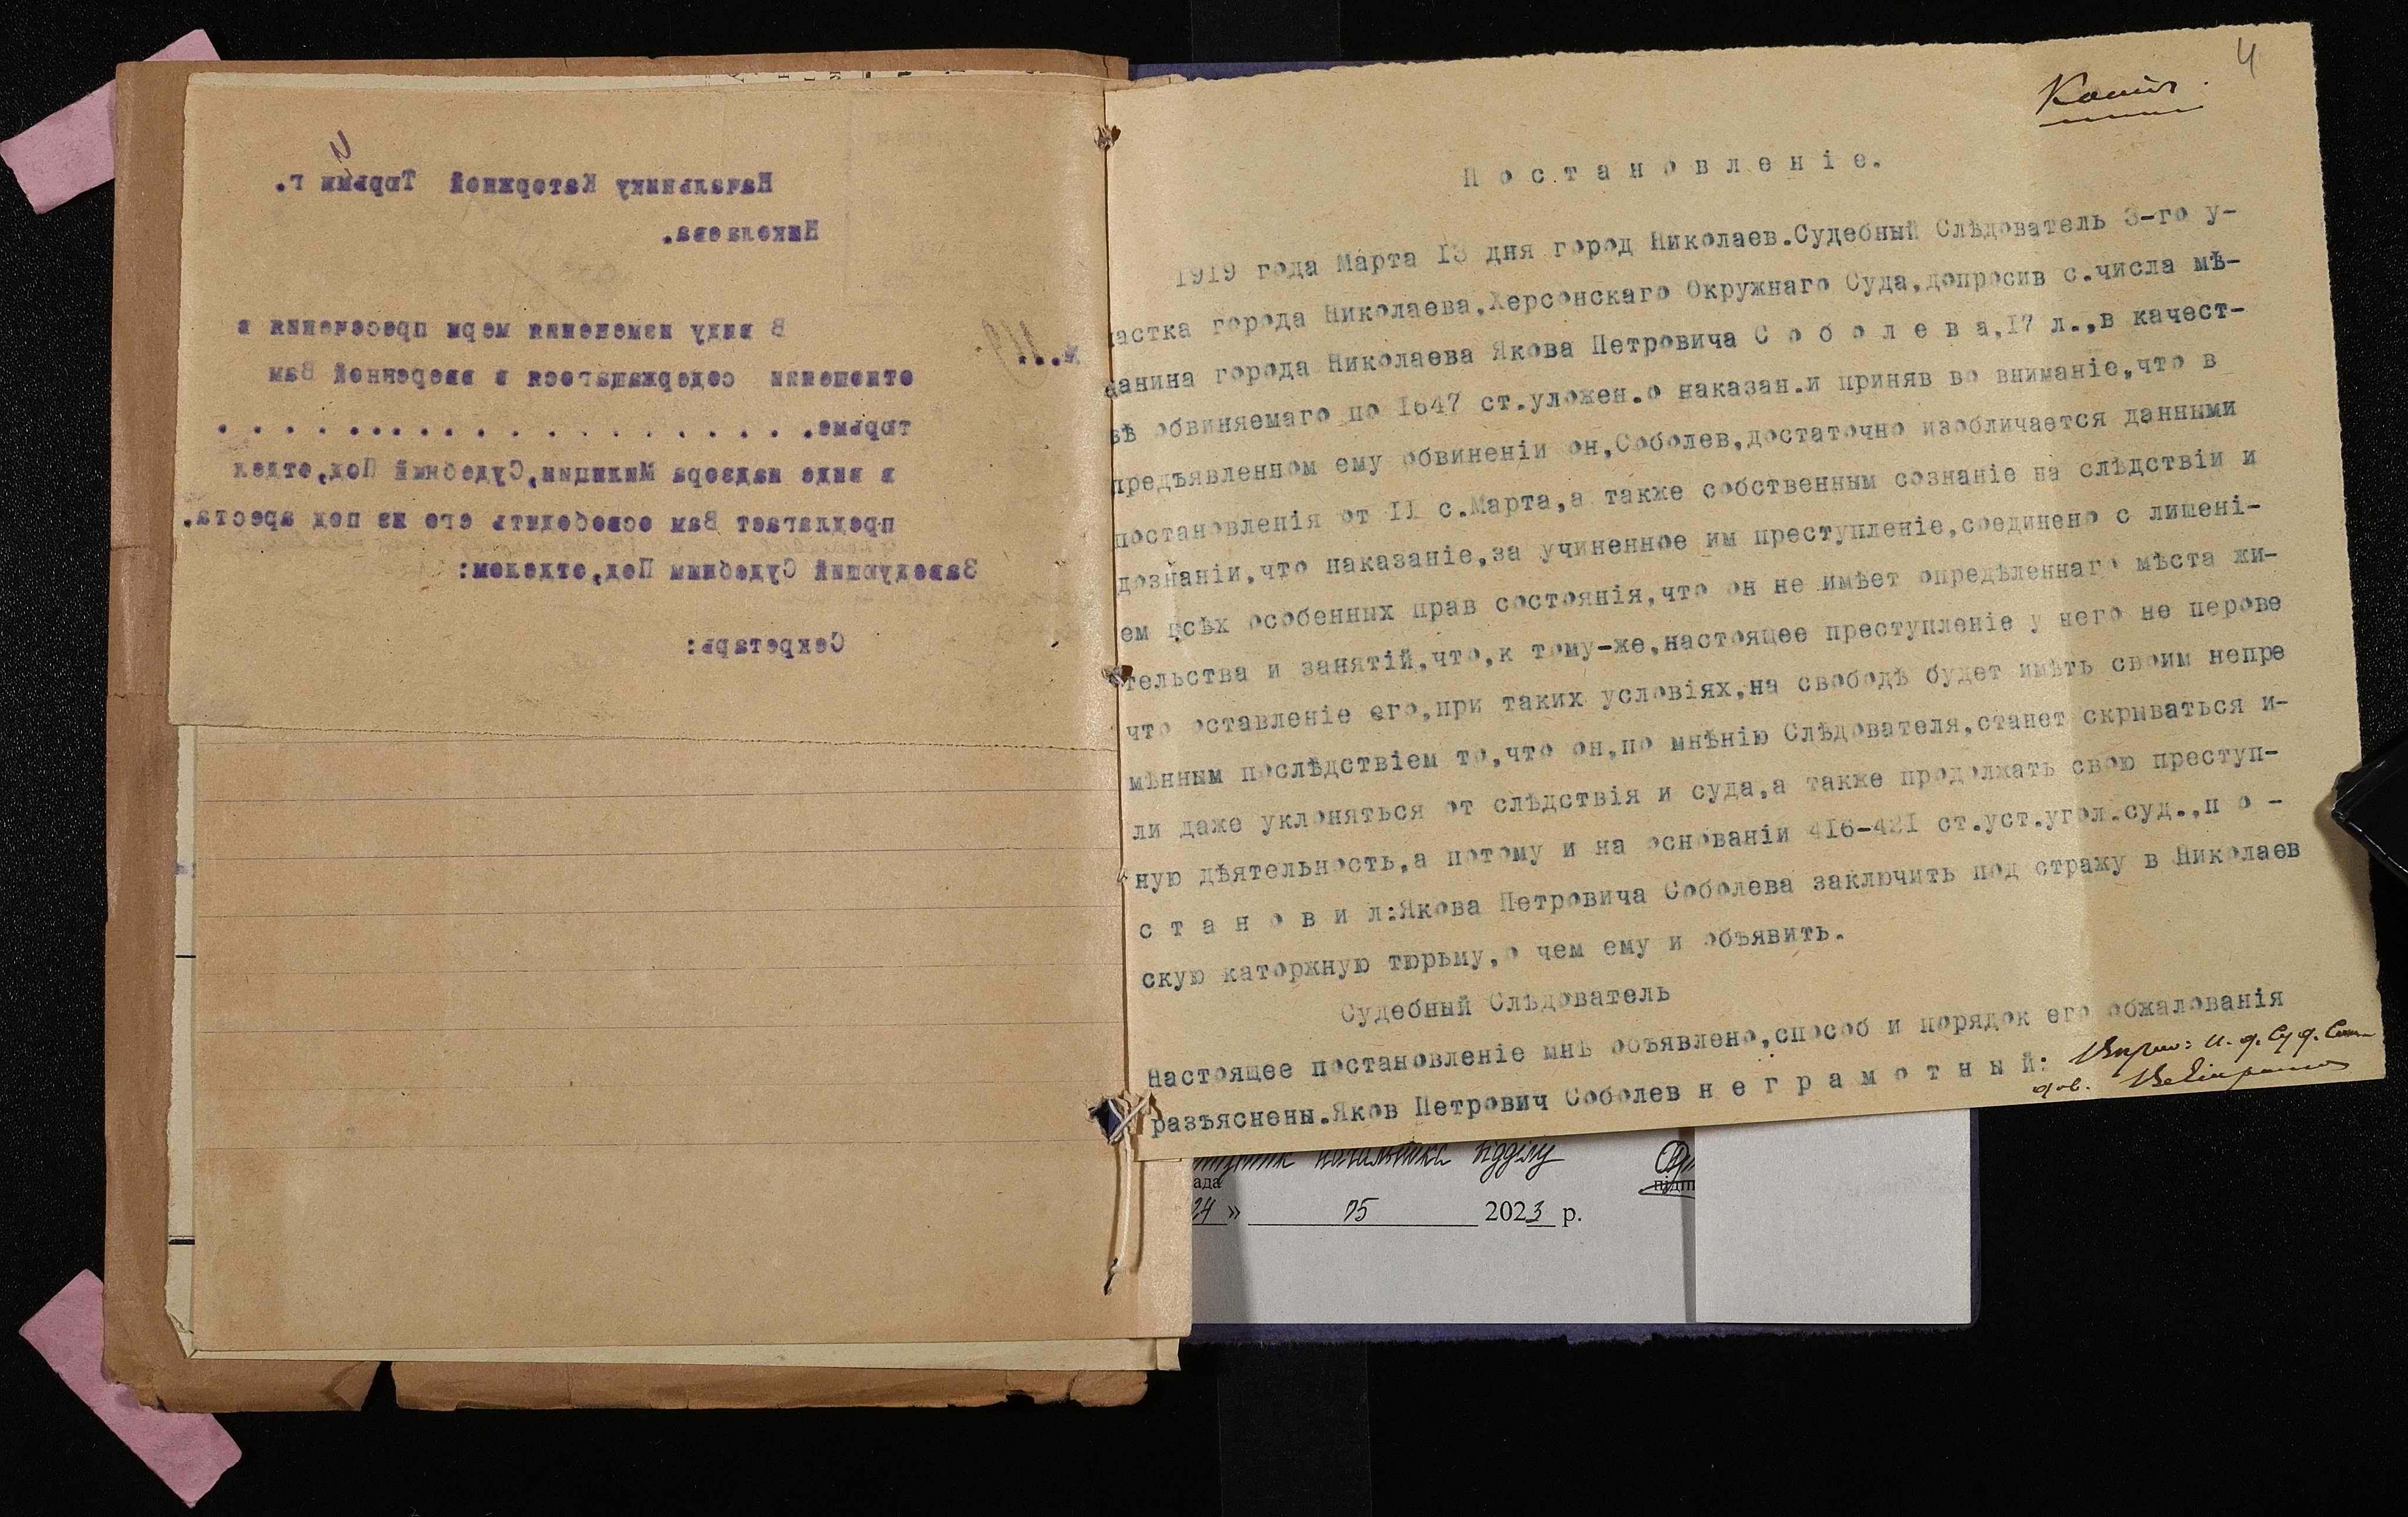 Начальнику Каторжной Тюрьмы г.
Николаева.
В виду изменения меры пресечения в
отношении содержащагося в вверенной Вам
тюрьме. . . . . . . . . . . . . . . . . . .
в виде надзора Милиции,Судебный Под,отдел
предлагает Вам освободить его из под ареста.
Заведующий Судебным Под,отделом:
Секретарь:
4
Копія.
П о с т а н о в л е н і е.
1919 года Марта 13 дня город Николаев.Судебный Слѣдователь 3-го у-
частка города Николаева,Херсонскаго Окружнаго Суда,допросив с.числа мѣ-
щанина города Николаева Якова Петровича С о б о л е в а,17 л.,в качест-
вѣ обвиняемаго по 1647 ст.уложен.о наказан.и приняв во вниманіе,что в
предъявленном ему обвиненіи он,Соболев,достаточно изобличается данными
постановленія от II с.Марта,а также собственным сознаніе на слѣдствіи и
дознаніи,что наказаніе,за учиненное им преступленіе,соединено с лишені-
ем всѣх особенных прав состоянія,что он не имѣет опредѣленнаго мѣста жи-
тельства и занятій,что,к тому-же,настоящее преступленіе у него не перове
что оставленіе его,при таких условіях,на свободѣ будет имѣть своим непре
мѣнным послѣдствіем то,что он,по мнѣнію Слѣдователя,станет скрываться и-
ли даже уклоняться от слѣдствія и суда,а также продолжать свою преступ-
ную дѣятельность,а потому и на основаніи 416-421 ст.уст.угол.суд.,п о -
с т а н о в и л:Якова Петровича Соболева заключить под стражу в Николаев
скую каторжную тюрьму,о чем ему и объявить.
Судебный Слѣдователь
Настоящее постановленіе мнѣ объявлено,способ и порядок его обжалованія
разъяснены.Яков Петрович Соболев н е г р а м о т н ы й:
Вѣрно: И. д. Суд. Слѣ-
дов.
начальника відділу
24 » 05 2023 р.